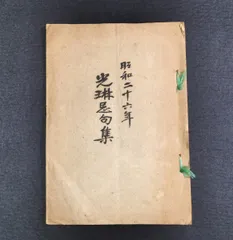 昭和二十六年
光琳忌句集